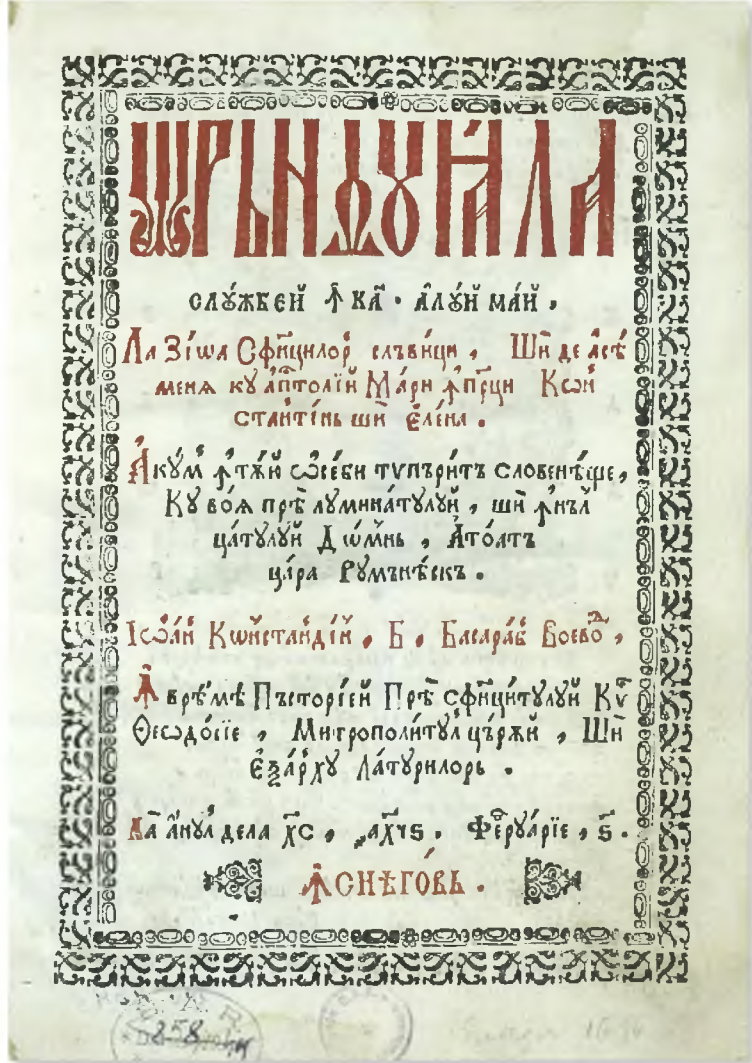 Ѻрѫндꙋꙗла
слꙋ́жбей ꙟ҆ ка҃ · а҆лꙋ́й ма́й ,
Ла Зі́ѡа Сфи́нцилор слъви́ци , Ши́ де асѣ́
меня кꙋ ап҃толїй Ма́ри ꙟ҆пр҃ци Кѡн
станті́нь ши Еле́на .
Акꙋ́м ꙟ҆тѫ́ю ѡ҆се́би тѵпъри́тъ словенѣ́ще ,
Кꙋ во́ѧ прѣ лꙋмина́тꙋлꙋй , ши ꙟ҆нъл
ца́тꙋлꙋй Дѡ́мнь , А҆то́атъ
ца́ра Рꙋмънѣ́скъ .
Іѡа́н Кѡнстанді́н , Б , Басара́б Воево́д ,
Ꙟ҆ врѣ́мѣ Пъсторі́ей Прѣ сфинци́тꙋлꙋй Кѵ҃
Ѳеѡдо́сїе , Митрополи́тꙋл цъ́рѫй , Ши́
Еѯа́рхꙋ Ла́тꙋрилорь .
Ла а́нꙋл дела х҃с , ҂ахч҃ѕ . Фервꙋа́рїе , ѕ҃ .
Ꙟ҆ Снѣ́говь .
258